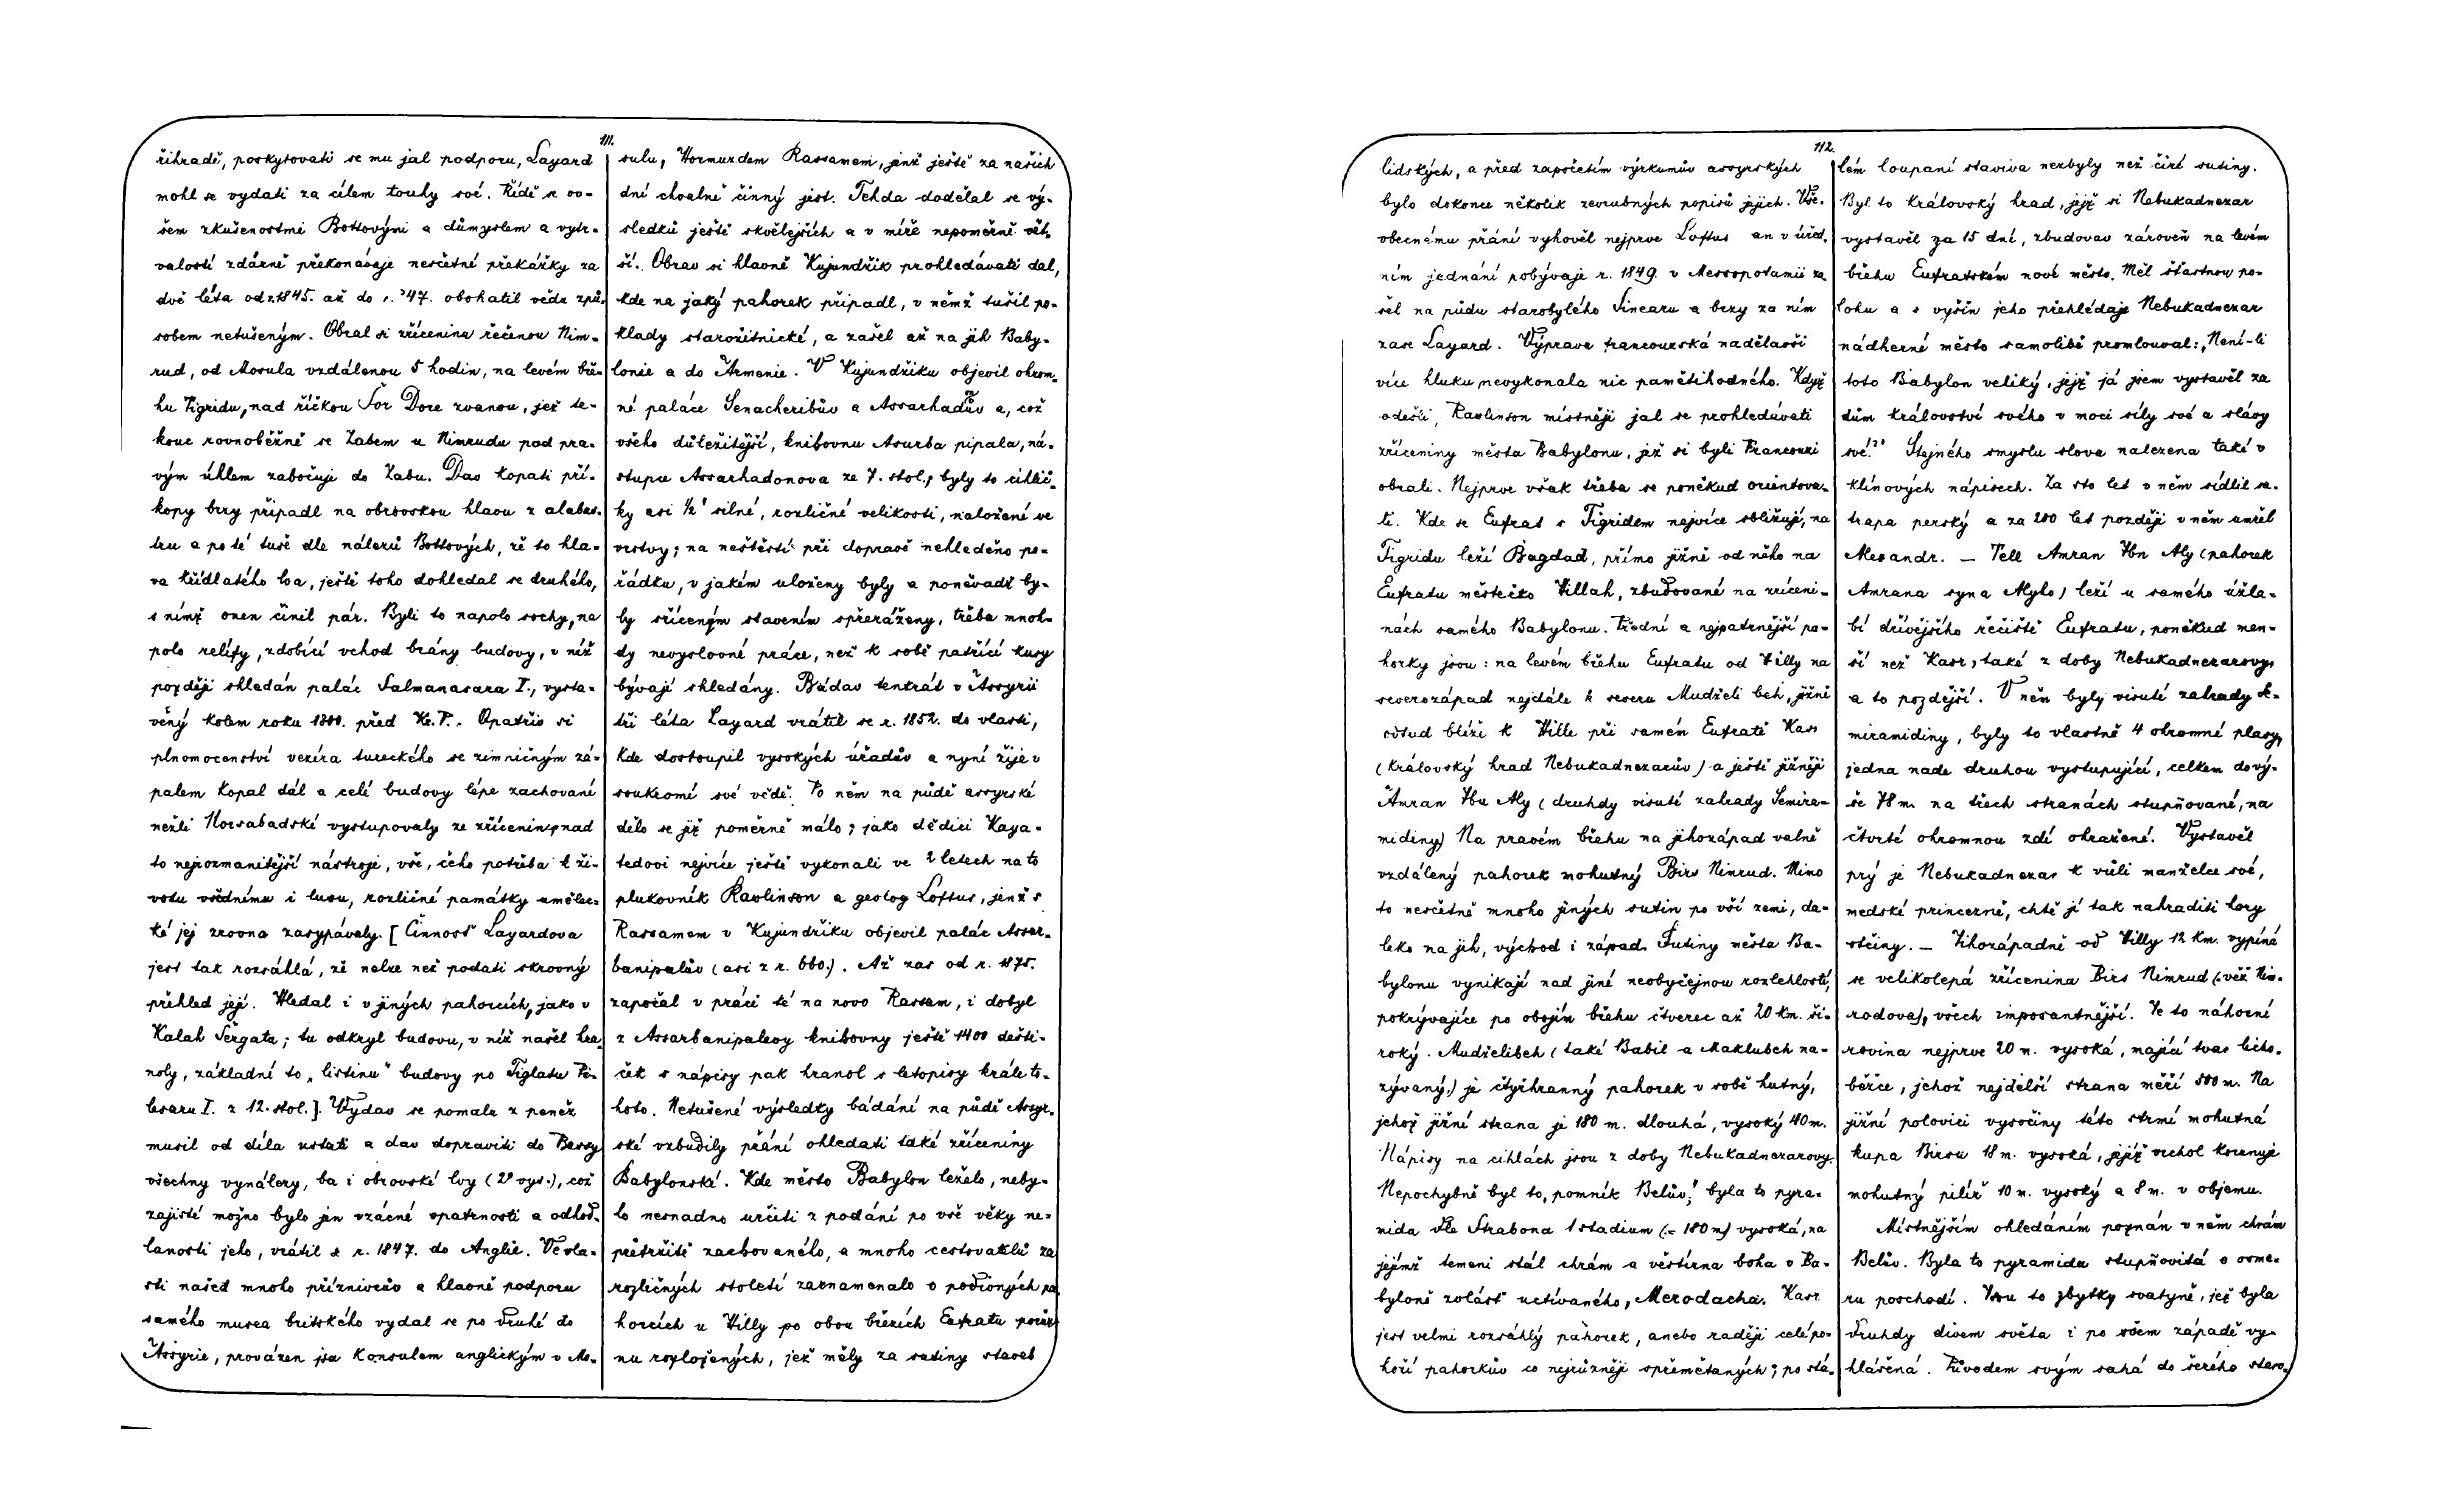 111.
řihradě, poskytovati se mu jal podporu, Layard
mohl se vydati za cílem touhy své. Řídě se ov-
šem zkušenostmi Bottovými a důmyslem a vytr-
valostí zdárně překonávaje nesčetné překážky za
dvě léta od r. 1845. až do r. '47. obohatil vědu způ-
sobem netušeným. Obral si zříceninu řečenou Nim-
rud, od Mosula vzdálenou 5 hodin, na levém bře-
hu Tigridu, nad říčkou Šor Dere zvanou, jež te-
kouc rovnoběžně se Zabem u Nimrudu pod pra-
vým úhlem zabočuje do Zabu. Dav kopati pří-
kopy brzy připadl na obrovskou hlavu z alabas-
tru a po té tuše dle nálezů Bottových, že to hla-
va křídlatého lva, ještě toho dohledal se druhého,
s nímž onen činil pár. Byli to napolo sochy, na
polo reliefy, zdobící vchod brány budovy, v níž
později shledán palác Salmanasara I., vysta-
věný kolem roku 1300. před Kr. P. Opatřiv si
plnomocenství vezíra tureckého se zimničným zá-
palem kopal dál a celé budovy lépe zachované
nežli Horsabadské vystupovaly ze zřícenin, nad
to nejrozmanitější nástroje, vše, čeho potřeba k ži-
votu všednímu i luxu, rozličné památky umělec-
ké jej zrovna zasypávaly. [Činnosť Layardova
jest tak rozsáhlá, že nelze než podati skrovný
přehled její. Hledal i v jiných pahorcích, jako v
Kalah Šergatu; tu odkryl budovu, v níž našel hra-
noly, základní to „listinu“ budovy po Tiglatu Pi-
lesaru I. z 12. stol.]. Vydav se pomalu z peněz
musil od díla ustati a dav dopraviti do Basry
všechny vynálezy, ba i obrovské lvy (2° vys.), což
zajisté možno bylo jen vzácné opatrnosti a odhod-
lanosti jeho, vrátil se r. 1847. do Anglie. Ve vla-
sti našed mnoho příznivcův a hlavně podporu
samého musea britského vydal se po druhé do
Assyrie, provázen jsa konsulem anglickým v Mo-
sulu, Hormuzdem Rassamem, jenž ještě za našich
dní chvalně činný jest. Tehda dodělal se vý-
sledků ještě skvělejších a v míře nepoměrně vět-
ší. Obrav si hlavně Kujundžik prohledávati dal,
kde na jaký pahorek připadl, v němž tušil po-
klady starožitnické, a zašel až na jih Baby-
lonie a do Armenie. V Kujundžiku objevil ohrom-
né paláce Senacheribův a Assarhadův a, což
všeho důležitější, knihovnu Asurba pipala, ná-
stupce Assarhadonova ze 7. stol., byly to cihlič-
ky asi ½' silné, rozličné velikosti, naložené ve
vrstvy; na neštěstí při dopravě nehleděno po-
řádku, v jakém uloženy byly a poněvadž by-
ly sříceným stavením spřeráženy, třeba mnoh-
dy nevýslovné práce, než k sobě patřící kusy
bývají shledány. Bádav tenkrát v Assyrii
tři léta Layard vrátil se r. 1852. do vlasti,
kde dostoupil vysokých úřadův a nyní žije v
soukromí své vědě. Po něm na půdě assyrské
dělo se již poměrně málo; jako dědici Laya-
rdovi nejvíce ještě vykonali ve 2 letech na to
plukovník Rawlinson a geolog Loftus, jenž s
Rassamem v Kujundžiku objevil palác Assar-
banipalův (asi z r. 660.). Až zas od r. 1875.
započal v práci té na novo Rassam, i dobyl
z Assarbanipalovy knihovny ještě 1400 dešti-
ček s nápisy pak hranol s letopisy krále to-
hoto. Netušené výsledky bádání na půdě Assyr-
ské vzbudily přání ohledati také zříceniny
Babylonské. Kde město Babylon leželo, neby-
lo nesnadno určiti z podání po vše věky ne-
přetržitě zachovaného, a mnoho cestovatelů za
rozličných století zaznamenalo o podivných pa-
horcích u Hilly po obou březích Eufratu porůz-
nu rozložených, jež měly za sutiny staveb
112.
lidských, a před započetím výzkumův assyrských
bylo dokonce několik zevrubných popisů jejich. Vše-
obecnému přání vyhověl nejprve Loftus an v úřed-
ním jednání pobývaje r. 1849. v Messopotamii za
šel na půdu starobylého Sinearu a brzy za ním
zase Layard. Výprava francouzská nadělavši
více hluku nevykonala nic pamětihodného. Když
odešli, Rawlinson místněji jal se prohledávati
zříceniny města Babylonu, jež si byli Francouzi
obrali. Nejprve však třeba se poněkud orientova-
ti. Kde se Eufrat s Tigridem nejvíce sbližují, na
Tigridu leží Bagdad, přímo jižně od něho na
Eufratu městečko Hillah, zbudované na zříceni-
nách samého Babylonu. Přední a nejpatrnější pa-
horky jsou: na levém břehu Eufratu od Hilly na
severozápad nejdále k severu Mudželi beh, jižně
odtud blíže k Hille při samém Eufratě Kasr
(královský hrad Nebukadnezarův) a ještě jižněji
Amran Ibn Aly (druhdy visuté zahrady Semira-
midiny) Na pravém břehu na jihozápad valně
vzdálený pahorek mohutný Birs Nimrud. Mimo
to nesčetně mnoho jiných sutin po vší zemi, da-
leko na jih, východ i západ. Sutiny města Ba-
bylonu vynikají nad jiné neobyčejnou rozlehlostí,
pokrývajíce po obojím břehu čtverec až 20 km. ši-
roký. Mudželibeh (také Babil a Maklubeh na-
zývaný.) je čtyřhranný pahorek v sobě hutný,
jehož jižní strana je 180 m. dlouhá, vysoký 40 m.
Nápisy na cihlách jsou z doby Nebukadnezarovy.
Nepochybně byl to „pomník Belův;“ byla to pyra-
mida dle Strabona 1 stadium (= 180 m) vysoká, na
jejímž temeni stál chrám a věštírna boha v Ba-
byloně zvlásť uctívaného, Merodacha. Kasr
jest velmi rozsáhlý pahorek, anebo raději celé po-
hoří pahorkův co nejrůzněji spřemětaných; po stá-
lém loupaní staviva nezbyly než čiré sutiny.
Byl to královský hrad, jejž si Nebukadnezar
vystavěl za 15 dní, zbudovav zároveň na levém
břehu Eufratském nové město. Měl šťastnou po-
lohu a s výšin jeho přehlédaje Nebukadnezar
nádherné město samolibě promlouval: „Není-li
toto Babylon veliký, jejž já jsem vystavěl za
dům království svého v moci síly své a slávy
své?“ Stejného smyslu slova nalezena také v
klínových nápisech. Za sto let v něm sídlil sa-
trapa perský a za 200 let později v něm umřel
Alexandr. — Tell Amran Ibn Aly (pahorek
Amrana syna Alylo) leží u samého úžla-
bí dřívějšího řečiště Eufratu, poněkud men-
ší než Kasr, také z doby Nebukadnezarovy,
a to pozdější. V něm byly visuté zahrady Se-
miramidiny, byly to vlastně 4 ohromné plasy,
jedna nade druhou vystupující, celkem do vý-
še 78 m. na třech stranách stupňované, na
čtvrté ohromnou zdí ohražené. Vystavěl
prý je Nebukadnezar k vůli manželce své,
medské princezně, chtě jí tak nahraditi hory
otčiny. — Jihozápadně od Hilly 12 km. vypíná
se velikolepá zřícenina Birs Nimrud (věž Nim-
rodova), všech imposantnější. Je to náhorní
rovina nejprve 20 m. vysoká, mající tvar licho-
běžce, jehož nejdelší strana měří 500 m. Na
jižní polovici vysočiny této strmí mohutná
kupa Birsu 18 m. vysoká, jejíž vrchol korunuje
mohutný pilíř 10 m. vysoký a 8 m. v objemu.
Místnějším ohledáním poznán v něm chrám
Belův. Byla to pyramida stupňovitá o osme-
ru poschodí. Jsou to zbytky svatyně, jež byla
druhdy divem světa i po všem západě vy-
hlášená. Původem svým sahá do šerého staro-